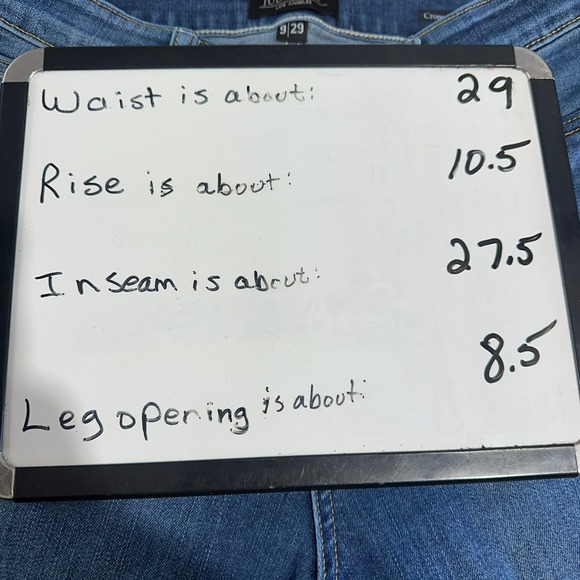 9|29
Waist is about: 29
Rise is about: 10.5
Inseam is about: 27.5
Leg opening is about: 8.5